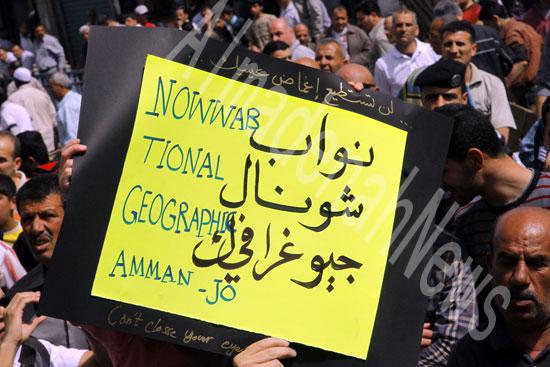 لن تستطيع إغماض عينيك ...
NOWWAB
TIONAL
GEOGRAPHIC
AMMAN-JO
نواب
شونال
جيوغرافيك
Can't classe your eyes
AlmadenahNews